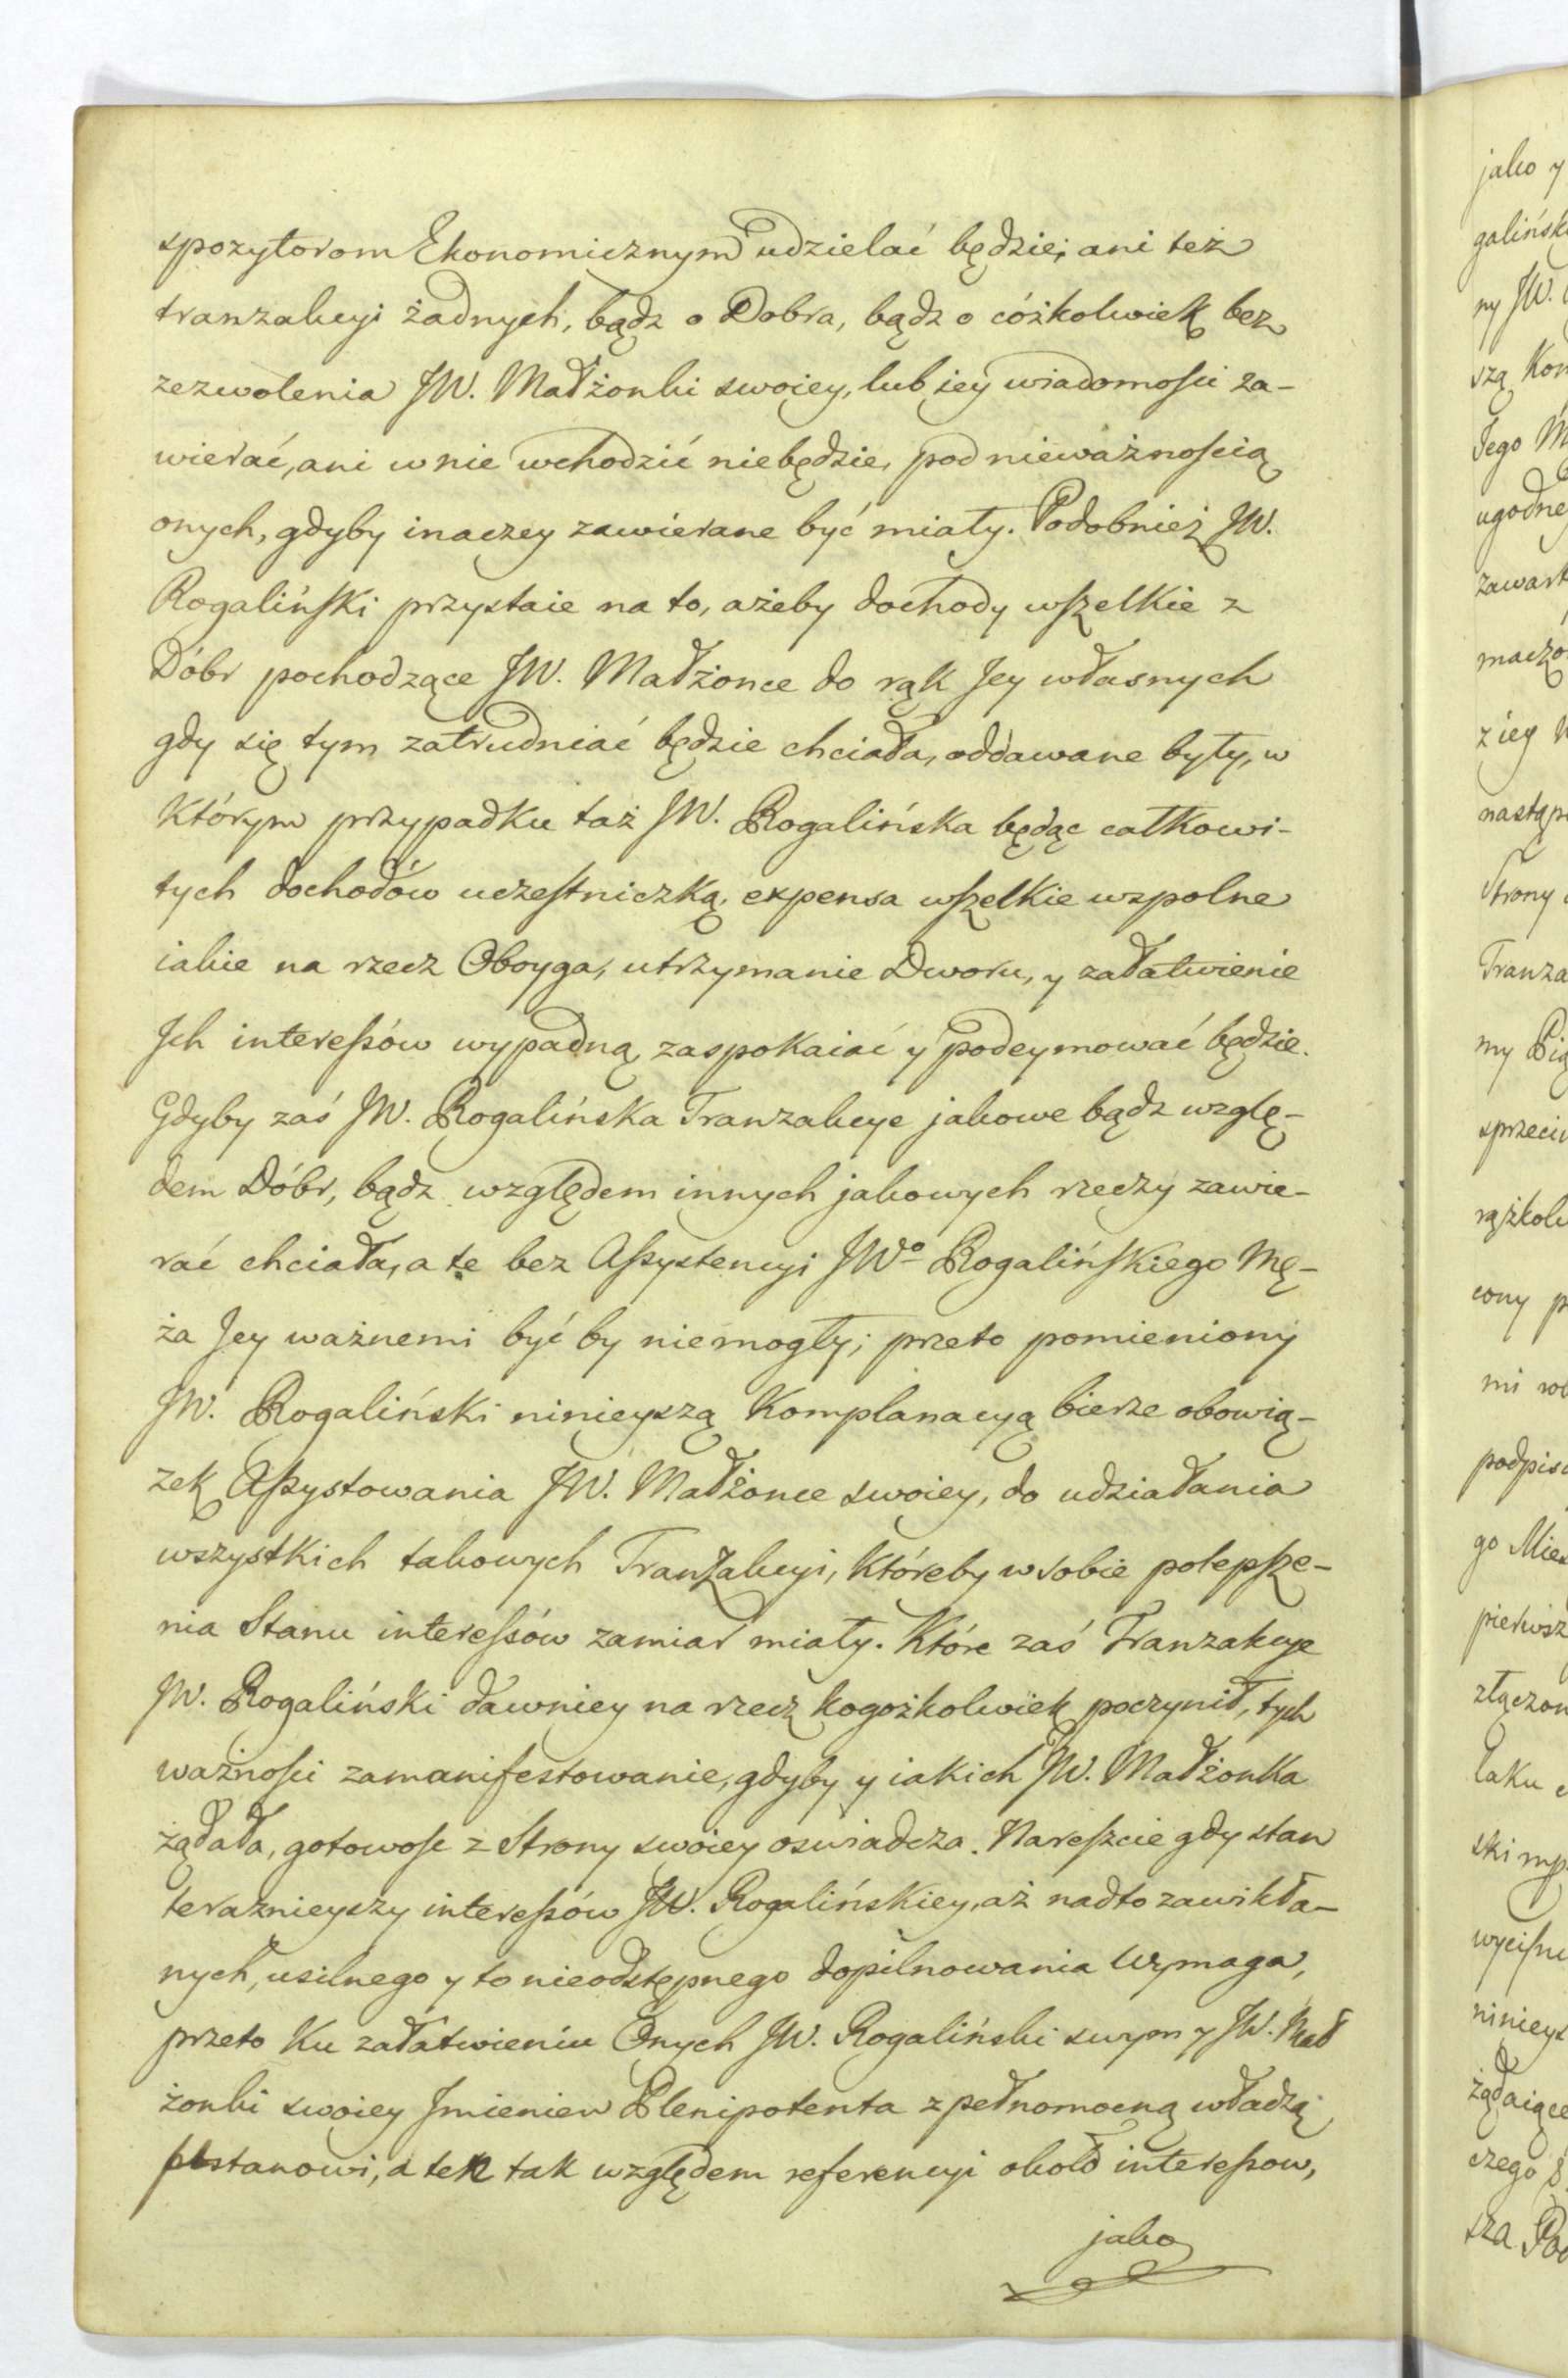 spozytorom Ekonomicznym udzielać będzie; ani też
tranzakcyi żadnych, bądz o Dobra, bądz o cóżkolwiek bez
zezwolenia JW. Małżonki swoiey, lub iey wiadomości za-
wierać, ani w nie wchodzić niebędzie, pod nieważnością
onych, gdyby inaczey zawierane być miały. Podobnież JW.
Rogaliński przystaie na to, ażeby dochody wszelkie z
Dóbr pochodzące JW. Małżonce do rąk Jey własnych
gdy się tym zatrudniać będzie chciała, oddawane były, w
którym przypadku taż JW. Rogalińska będąc całkowi-
tych dochodów uczestniczką, expensa wszelkie wzpolne
iakie na rzecz Oboyga, utrzymanie Dworu, y załatwienie
Ich interessów wypadną, zaspokaiać y podeymować będzie.
Gdyby zaś JW. Rogalińska Tranzakcye jakowe bądz wzglę-
dem Dóbr, bądz względem innych jakowych rzeczy zawie-
rać chciała, a te bez Assystencyi JWo Rogalińskiego Mę-
ża Jey ważnemi być by niemogły; przeto pomieniony
JW. Rogaliński ninieyszą Komplanacyą bierze obowią-
zek Assystowania JW. Małżonce swoiey, do udziałania
wszystkich takowych Tranzakcyi, któreby w sobie polepsze-
nia Stanu interessów zamiar miały. Które zaś Tranzakcye
JW. Rogaliński dawniey na rzecz kogożkolwiek poczynił, tych
ważności zamanifestowanie, gdyby y iakich JW. Małżonka
żądała, gotowośc z Strony swoiey oswiadcza. Nareszcie gdy stan
teraznieyszy interessów JW. Rogalińskiey, aż nadto zawikła-
nych, usilnego y to nieodstępnego dopilnowania wymaga,
przeto ku załatwieniu Onych JW. Rogaliński swym y JW. Mał
żonki swoiey Jmieniem Plenipotenta z pełnomocną władzą
postanowi, a ten tak względem referencyi około interessow,
jako
jako y
galińsk
ny JW.
szą Kom
Jego M
ugodne
zawart
z iey
nastąp
Strony
Tranza
my
sprzeci
cony p
mi
podpis
go Mie
pierwsz
złączon
laku
ski
wycisn
ninieys
żądaiące
czego
sza Po